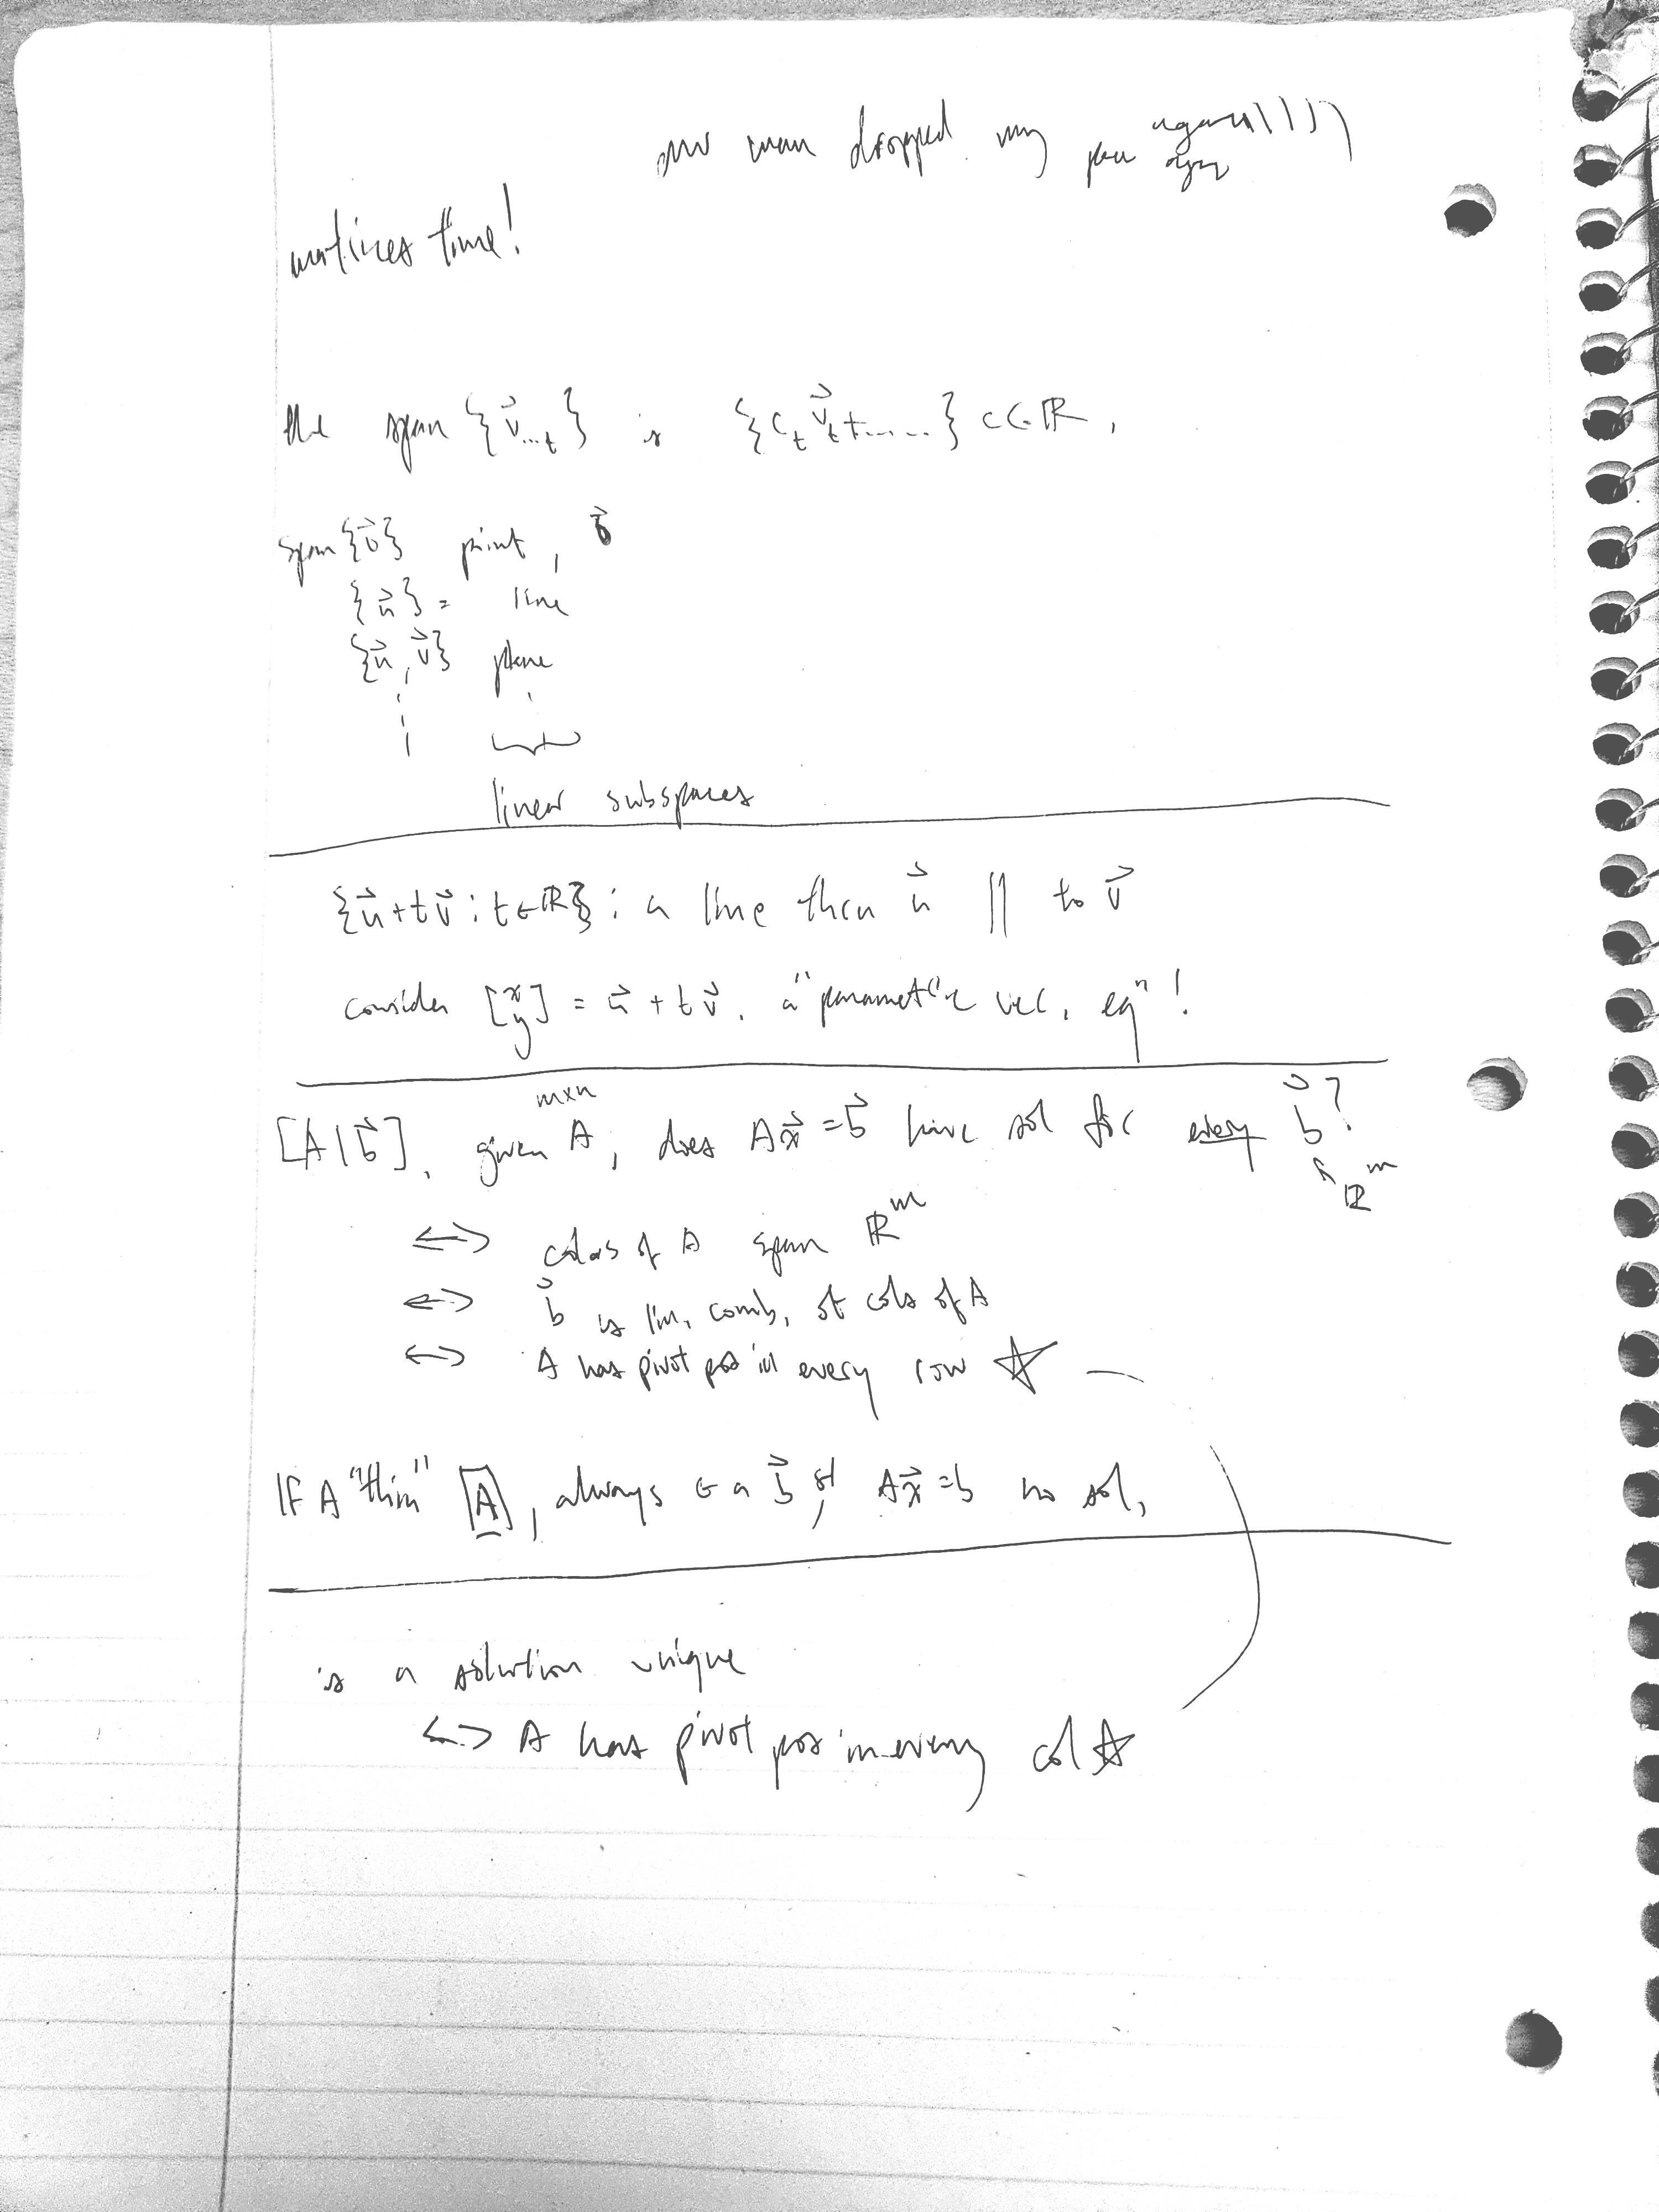 man dropped my pen again))))
matrices time!
the span {v⃗...t} is {c_t v⃗_t + ......} c∈ℝ,
span {0⃗} point, 0⃗
{u⃗} = line
{u⃗, v⃗} plane
linear subspaces
{u⃗+tv⃗ : t∈ℝ} : a line thru u⃗ || to v⃗
consider [x y] = u⃗ + tv⃗. a "parametric vec. eqⁿ"!
m×n
[A|b⃗]. given A, does Ax⃗=b⃗ have sol for every b⃗?
ℝᵐ
<-> cols of A span ℝᵐ
<-> b⃗ is lin. comb. of cols of A
<-> A has pivot pos in every row ☆
If A "thin" [A], always ∃ a b⃗ st Ax⃗=b no sol.
is a solution unique
<-> A has pivot pos in every col ☆